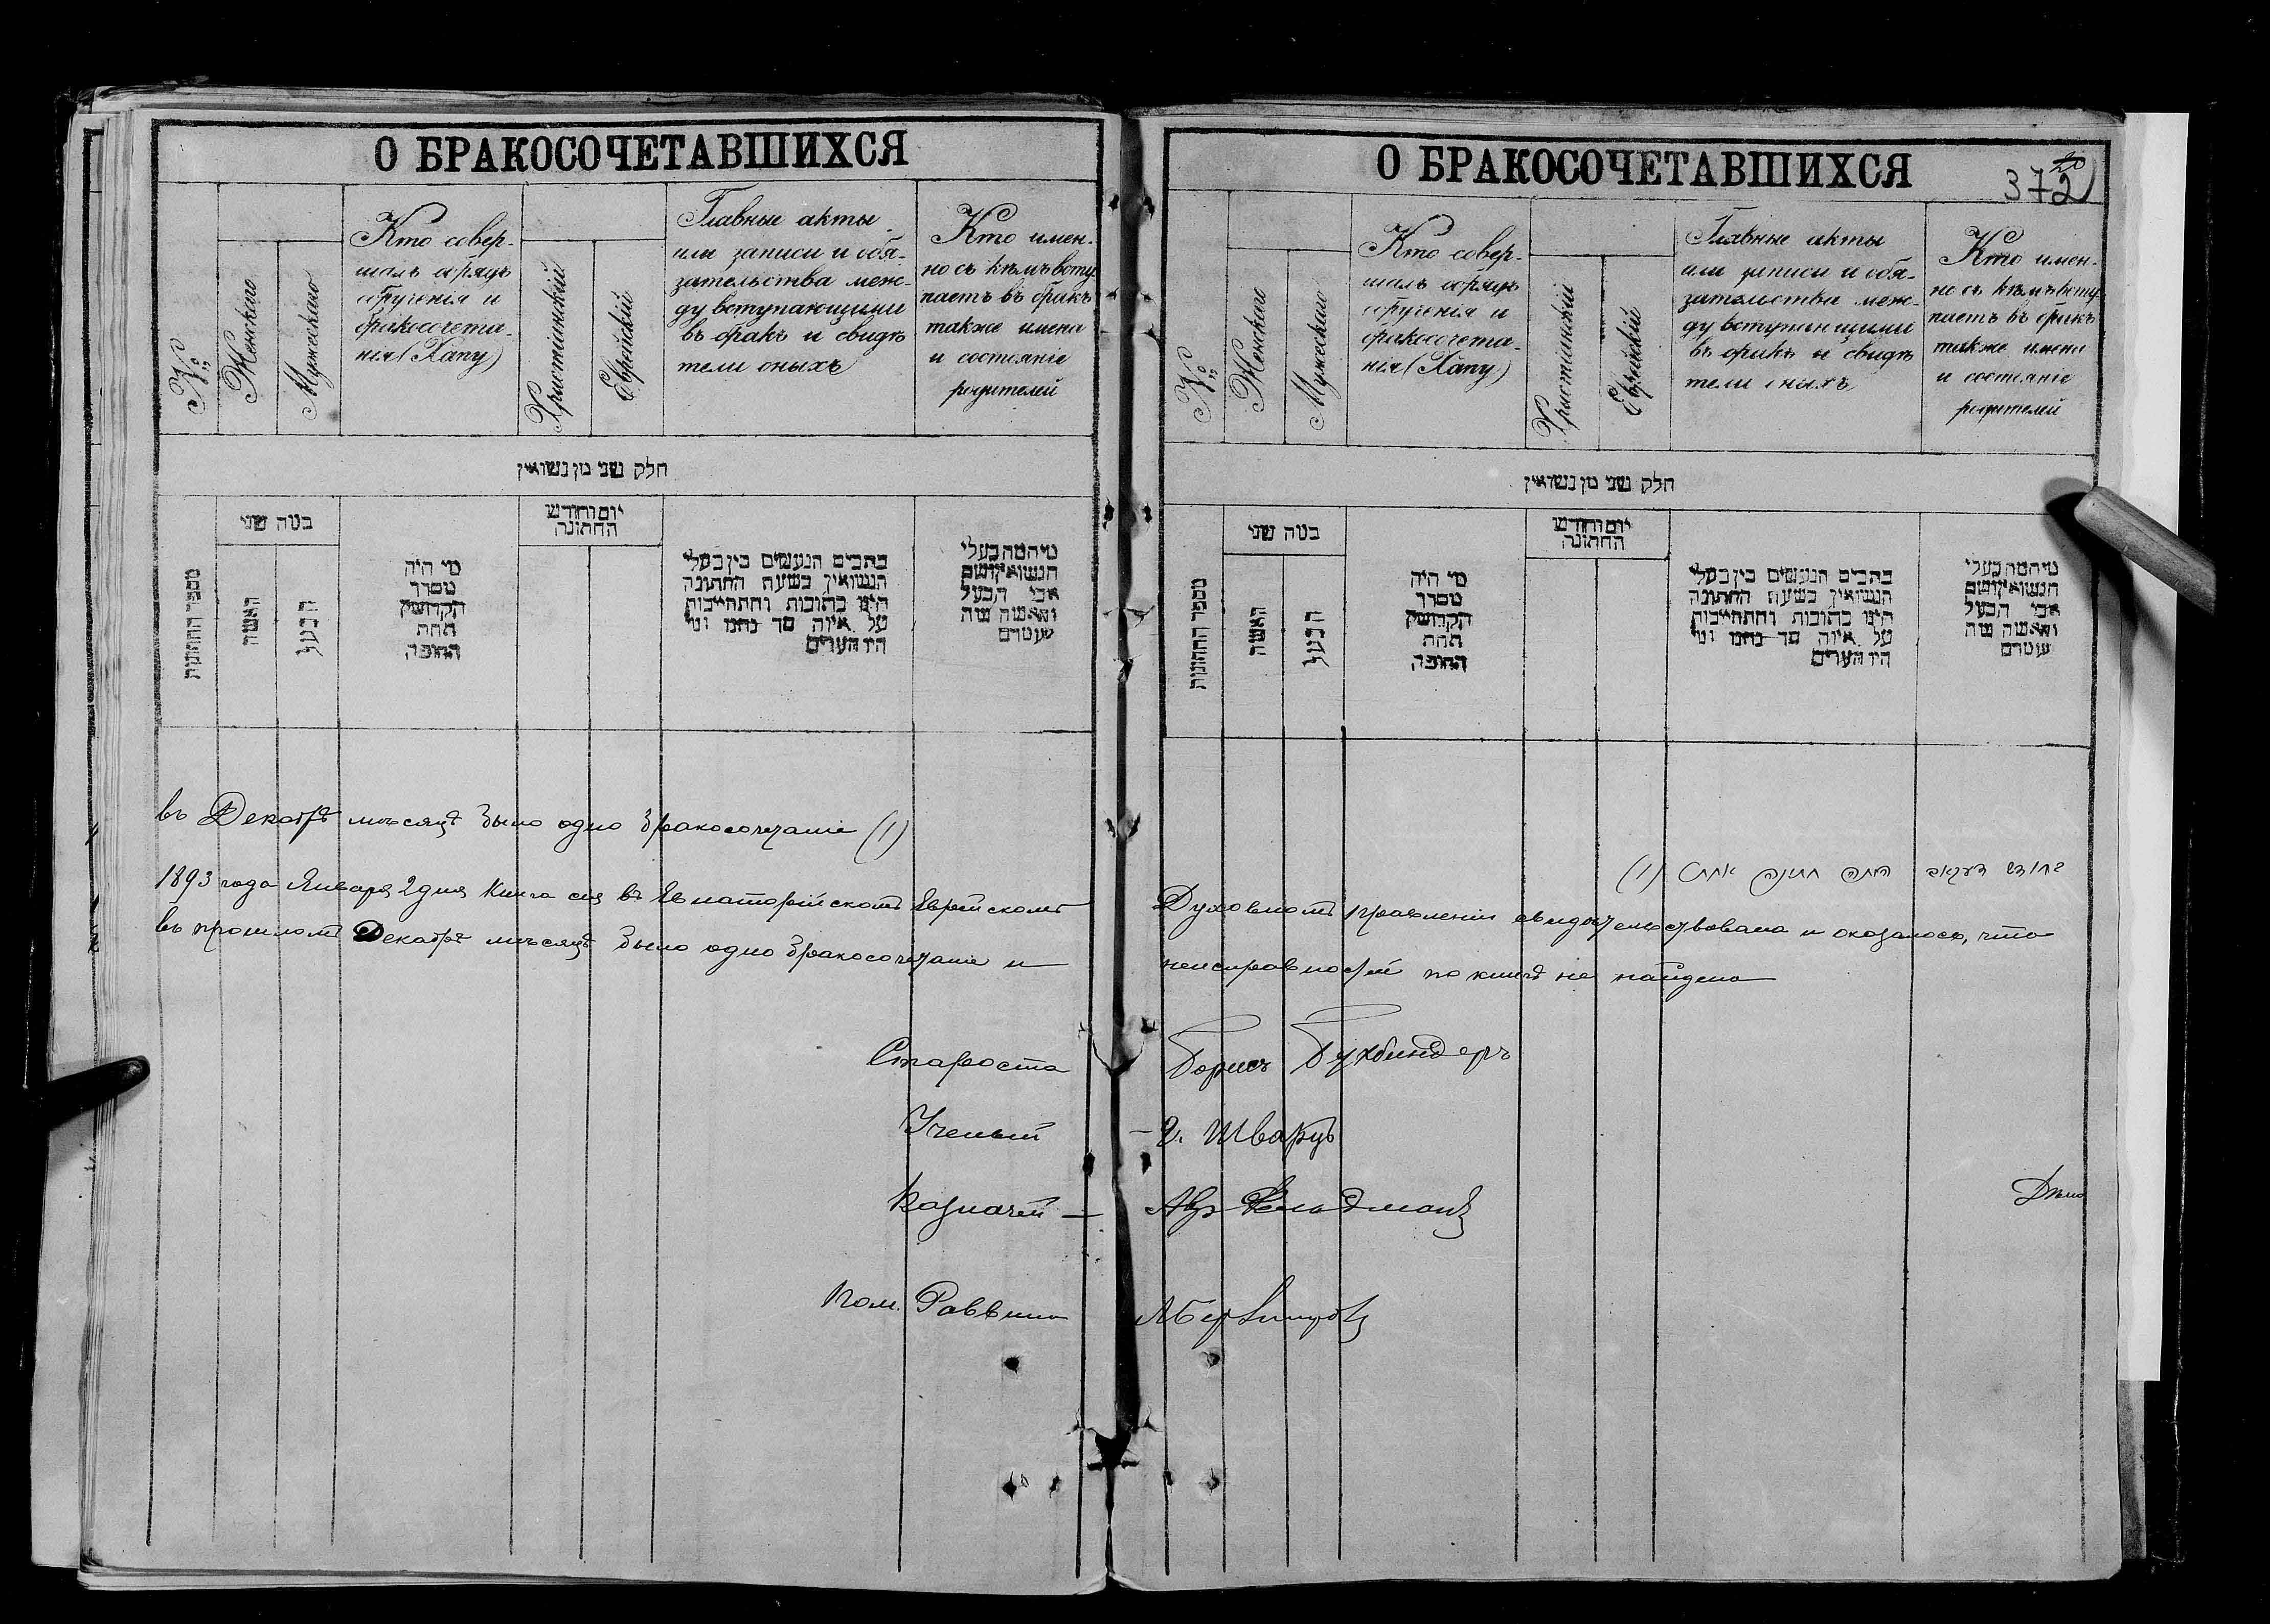 О БРАКОСОЧЕТАВШИХСЯ
№
Женскаго
Мужескаго
Кто совер-
шалъ обрядъ
обрученія и
бракосочета-
нія (Хапу)
Христіанскій
Еврейскій
Главные акты
или записи и обя-
зательства меж-
ду вступающими
въ бракъ и свидѣ
тели оныхъ
Кто имен-
но съ кѣмъ всту-
паетъ въ бракъ
также имена
и состояніе
родителей
חלק שני מן נשואין
מספר החתונות
כמה שני
האשה
הבעל
מי היה
מסדר
הקדושין
תחת
החופה
יום וחודש
החתונה
כתבים הנעשים בין בעלי
הנשואין בשעת החתונה
היינו כתובות והתחייבות
על איזה סך נתנו ומי
היו העדים
מי המה בעלי
הנשואין ושם
אבי הבעל
והאשה ומה
מעמדם
въ Декабрѣ мѣсяцѣ было одно бракосочетаніе (1)
1893 года Января 2 дня Книга сія въ Евпаторійскомъ Еврейскомъ
въ прошломъ Декабрѣ мѣсяцѣ было одно бракосочетаніе и
Староста
Ученый
Казначей —
Пом. Раввина
О БРАКОСОЧЕТАВШИХСЯ
372
№
Женскаго
Мужескаго
Кто совер-
шалъ обрядъ
обрученія и
бракосочета-
нія (Хапу)
Христіанскій
Еврейскій
Главные акты
или записи и обя-
зательства меж-
ду вступающими
въ бракъ и свидѣ
тели оныхъ
Кто имен-
но съ кѣмъ всту-
паетъ въ бракъ
также имена
и состояніе
родителей
חלק שני מן נשואין
מספר החתונות
כמה שני
האשה
הבעל
מי היה
מסדר
הקדושין
תחת
החופה
יום וחודש
החתונה
כתבים הנעשים בין בעלי
הנשואין בשעת החתונה
היינו כתובות והתחייבות
על איזה סך נתנו ומי
היו העדים
מי המה בעלי
הנשואין ושם
אבי הבעל
והאשה ומה
מעמדם
בחודש דעקאב היתה חתונה אחת (1)
Духовномъ Правленіи свидѣтельствована и оказалось, что
неисправностей по книгѣ не найдено
Борисъ Бухбиндеръ
Шварцъ
Авр Фельдманъ